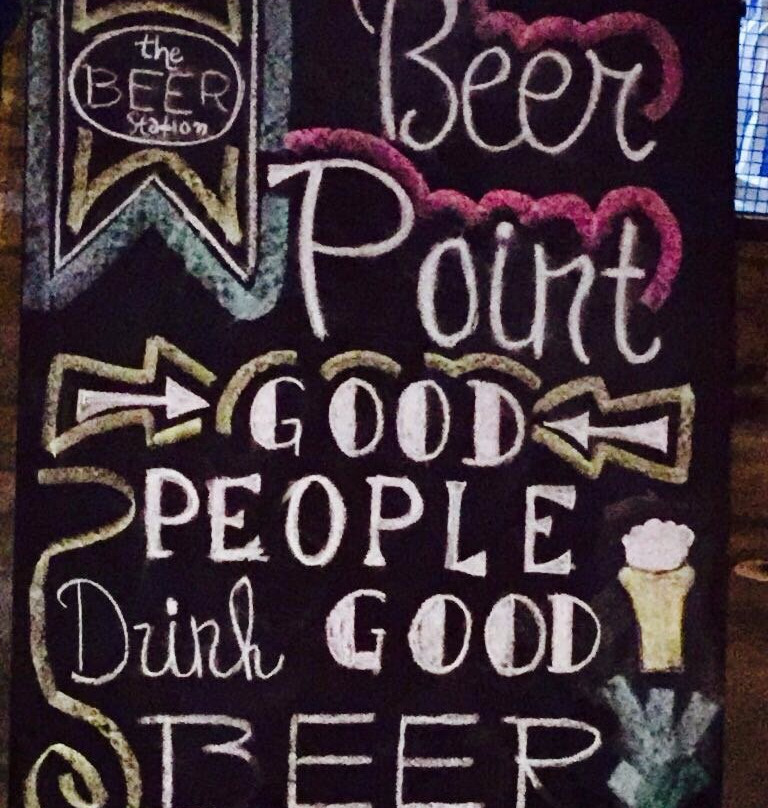 the
BEER
Station
Beer
Point
GOOD
PEOPLE
Drink GOOD
BEER